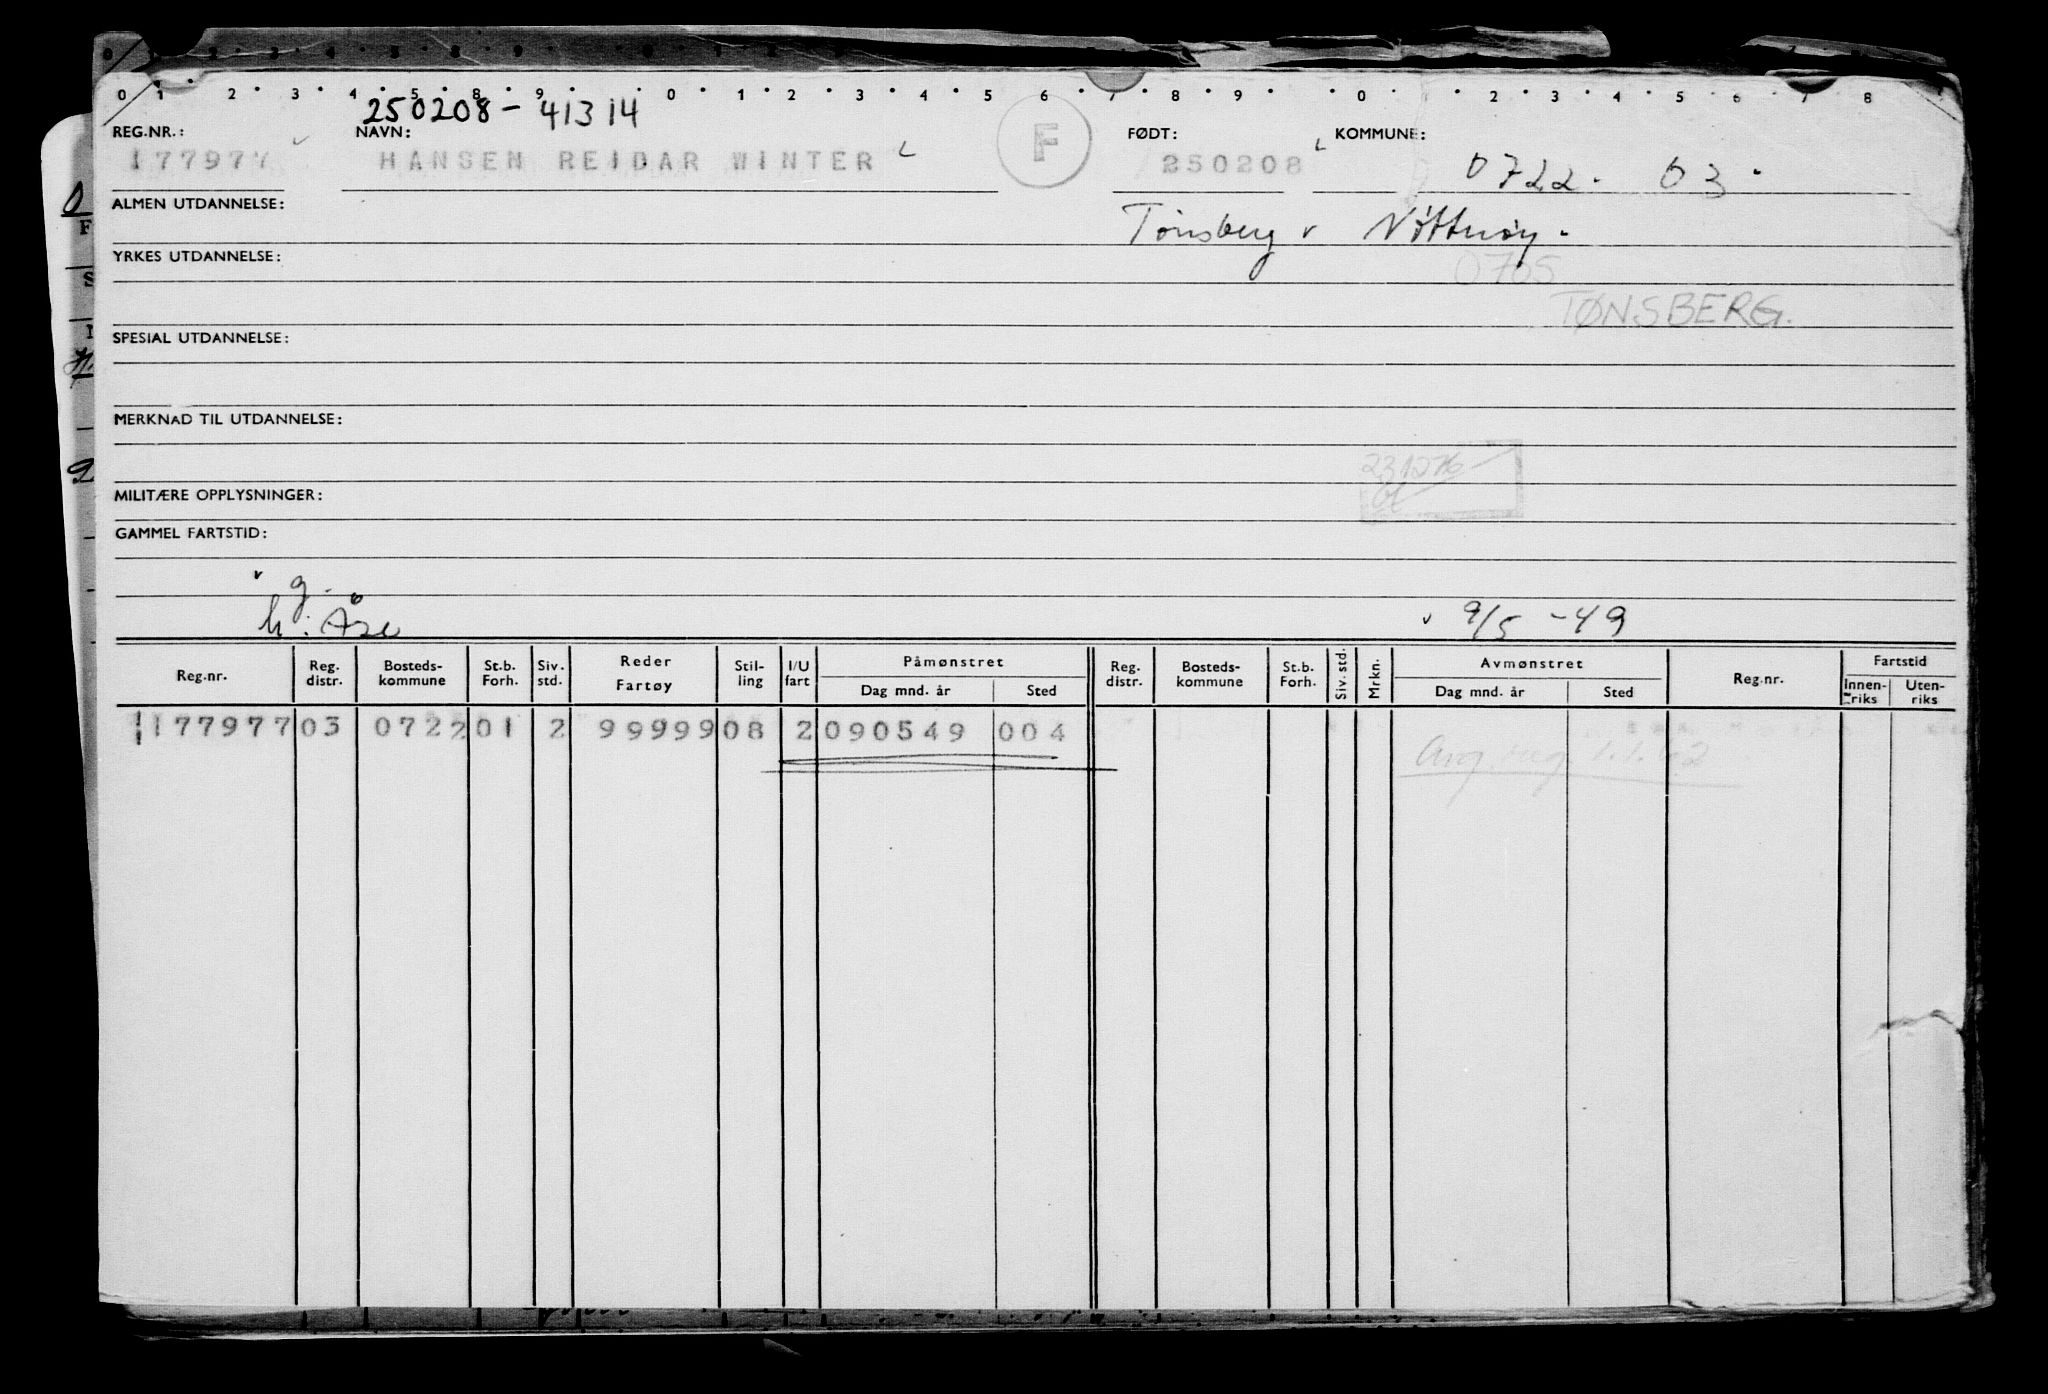 0 1 2 3 4 5 8 9 0 1 2 3 4 5 6 7 8 9 0 1 2 3 4 5 6 7 8
250208-41314
REG.NR.: NAVN: F FØDT: KOMMUNE:
177977 HANSEN REIDAR WINTER 250208 0722. 03.
ALMEN UTDANNELSE: Tønsberg v Nøtterøy.
YRKES UTDANNELSE: 0705
TØNSBERG.
SPESIAL UTDANNELSE:
MERKNAD TIL UTDANNELSE:
231276
MILITÆRE OPPLYSNINGER:
GAMMEL FARTSTID:
g.
h: Åse v 9/5 -49
Reg.nr. Reg. distr. Bosteds-kommune St.b. Forh. Siv. std. Reder Fartøy Stil-ling I/U fart Påmønstret Dag mnd. år Sted Reg. distr. Bosteds-kommune St.b. Forh. Siv. std. Mrkn. Avmønstret Dag mnd. år Sted Reg.nr. Fartstid Innen-riks Uten-riks
177977 03 0722 01 2 99999 08 2 090549 004